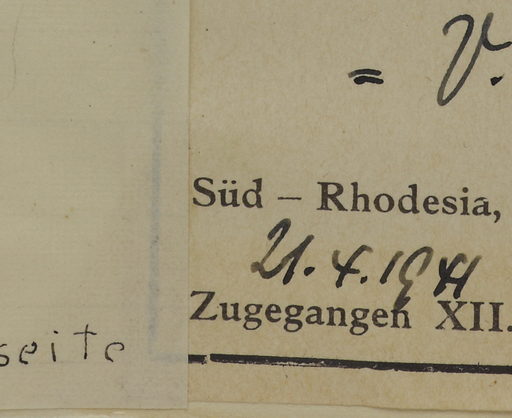 = V.
Süd – Rhodesia,
21. 4. 1941
Zugegangen XII.
seite